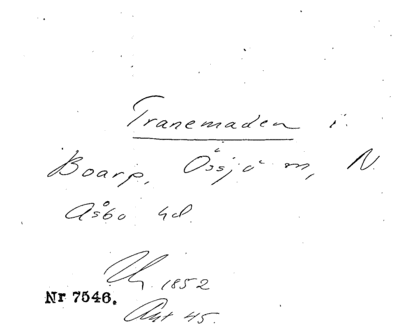 Tranemaden i
Boarp, Össjö sn, N.
Åsbo hd.
1852
Nr 7546.
45.